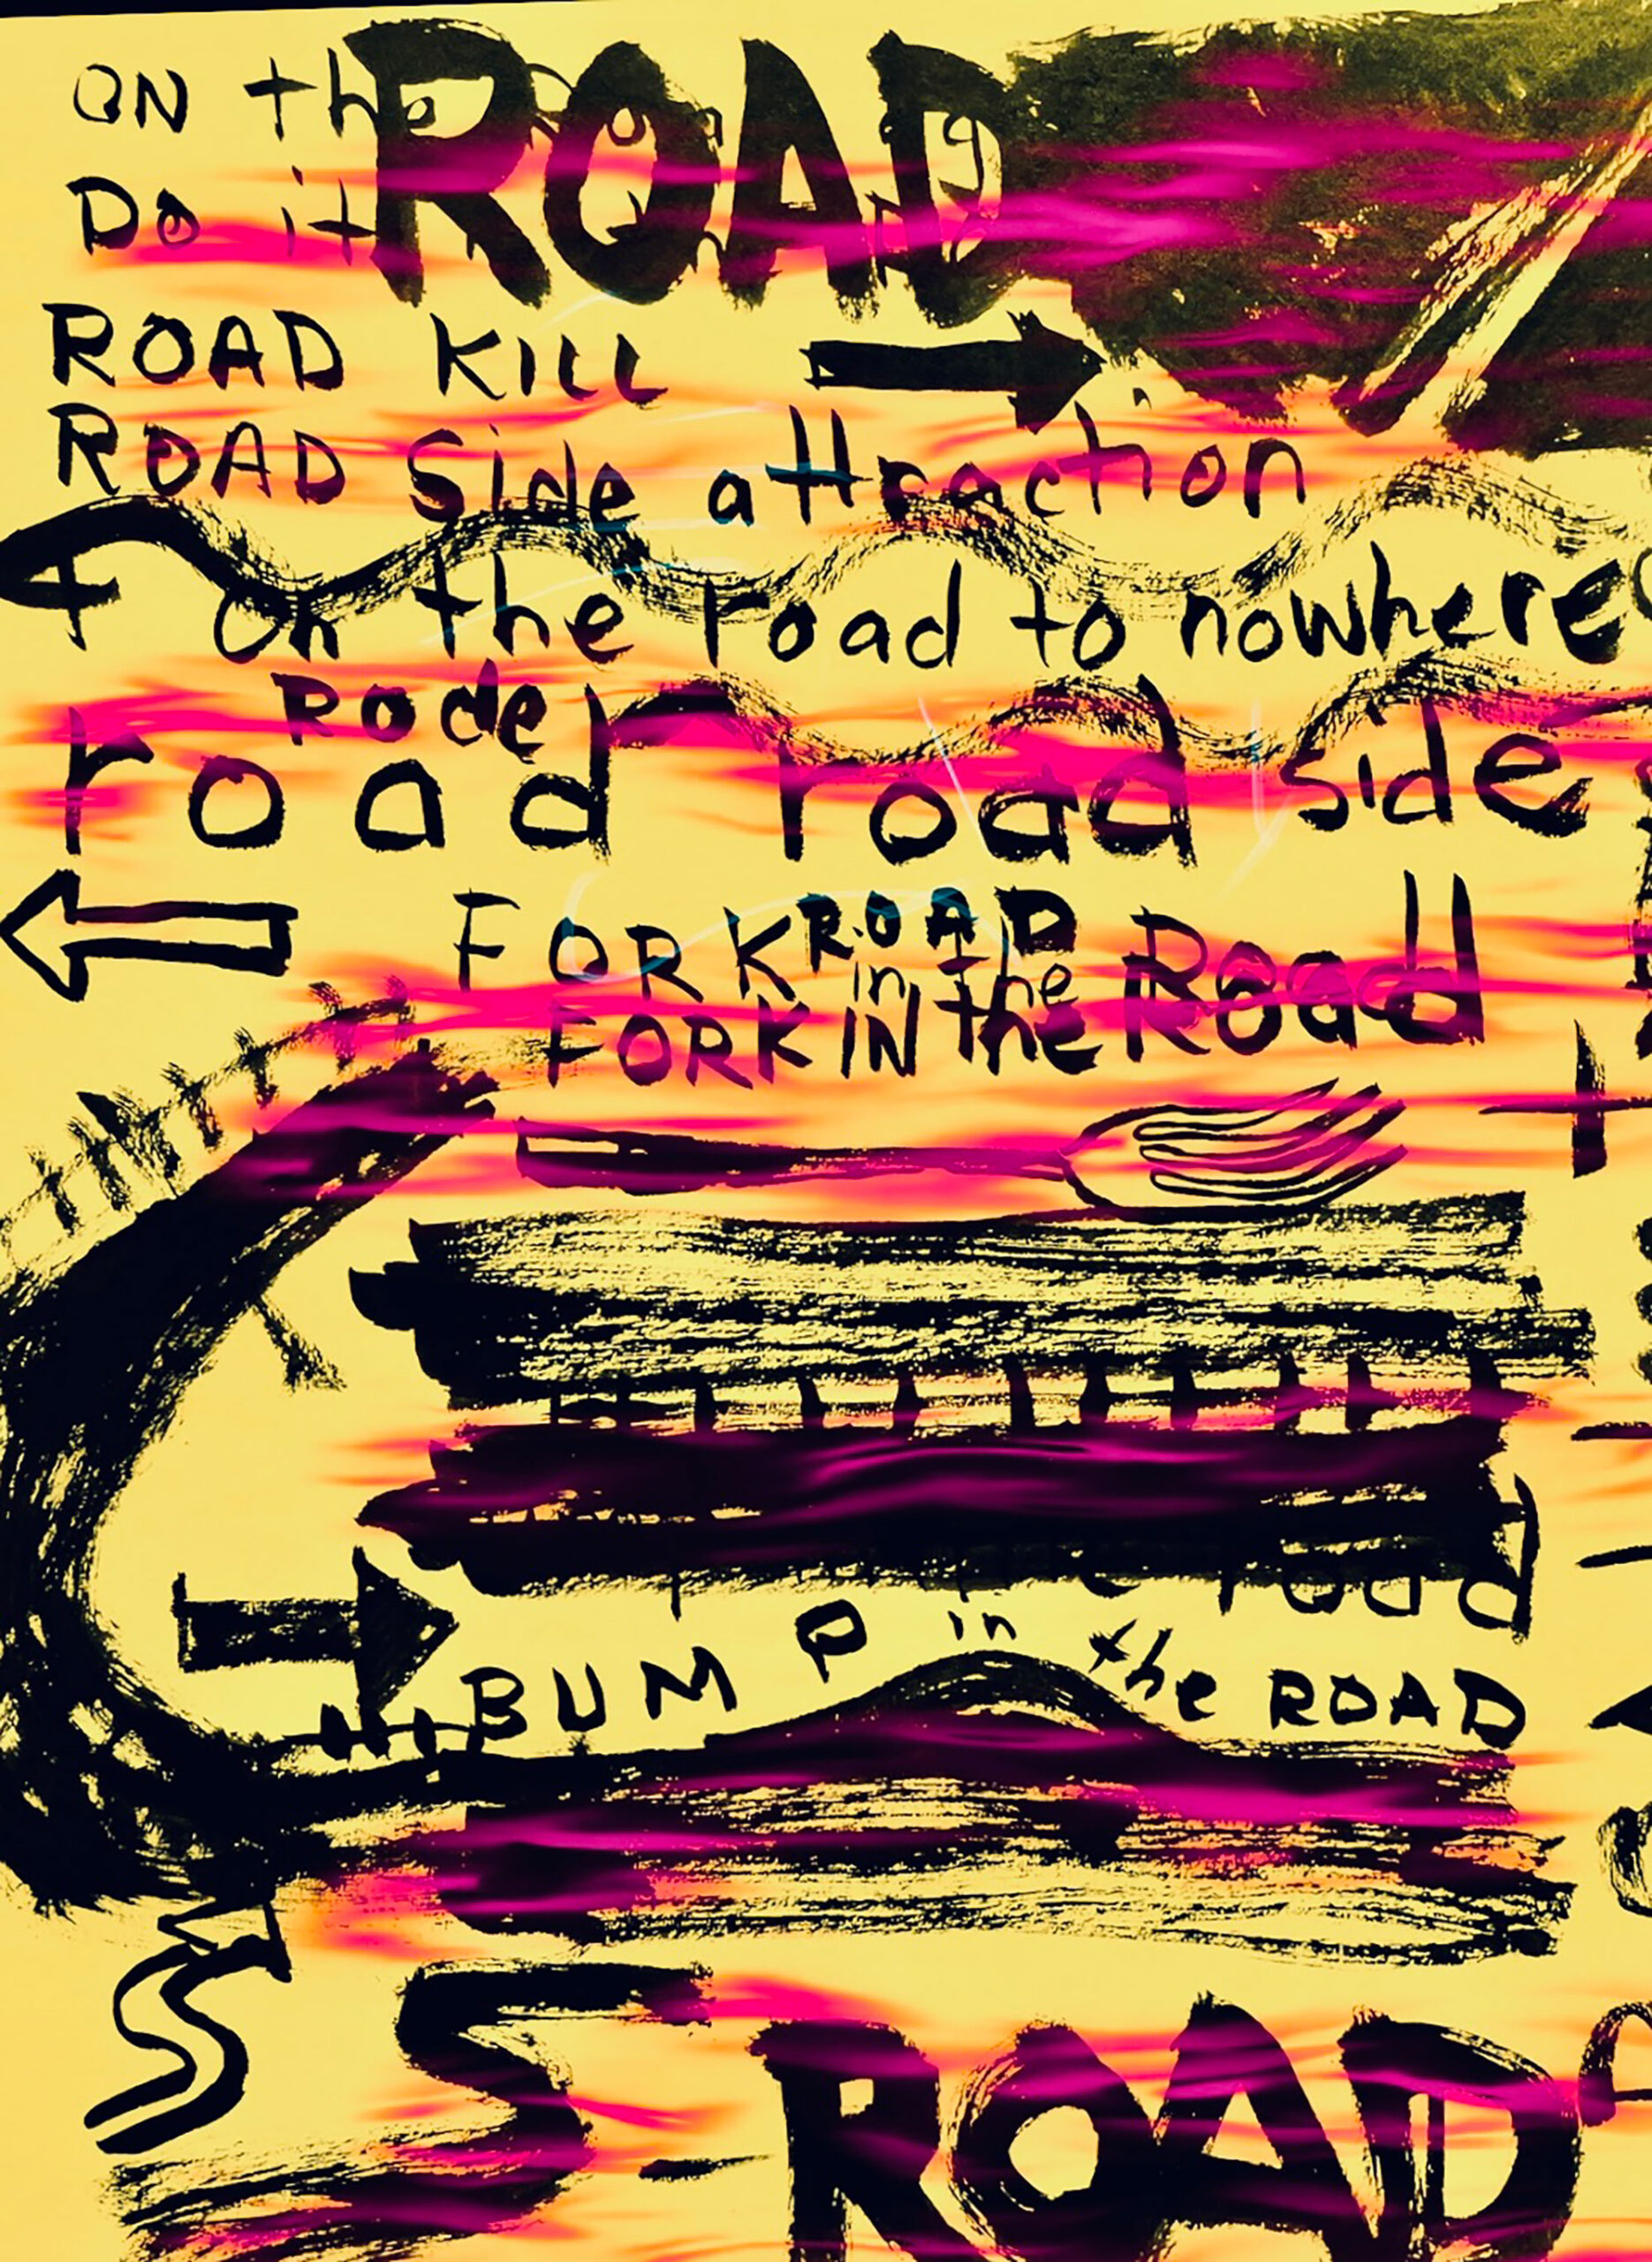 ON the ROAD
Do it
ROAD KILL
ROAD Side attraction
on the road to nowhere
Rode
road road side
FORK ROAD
in the Road
FORK IN the
road
BUMP in the ROAD
S-ROAD